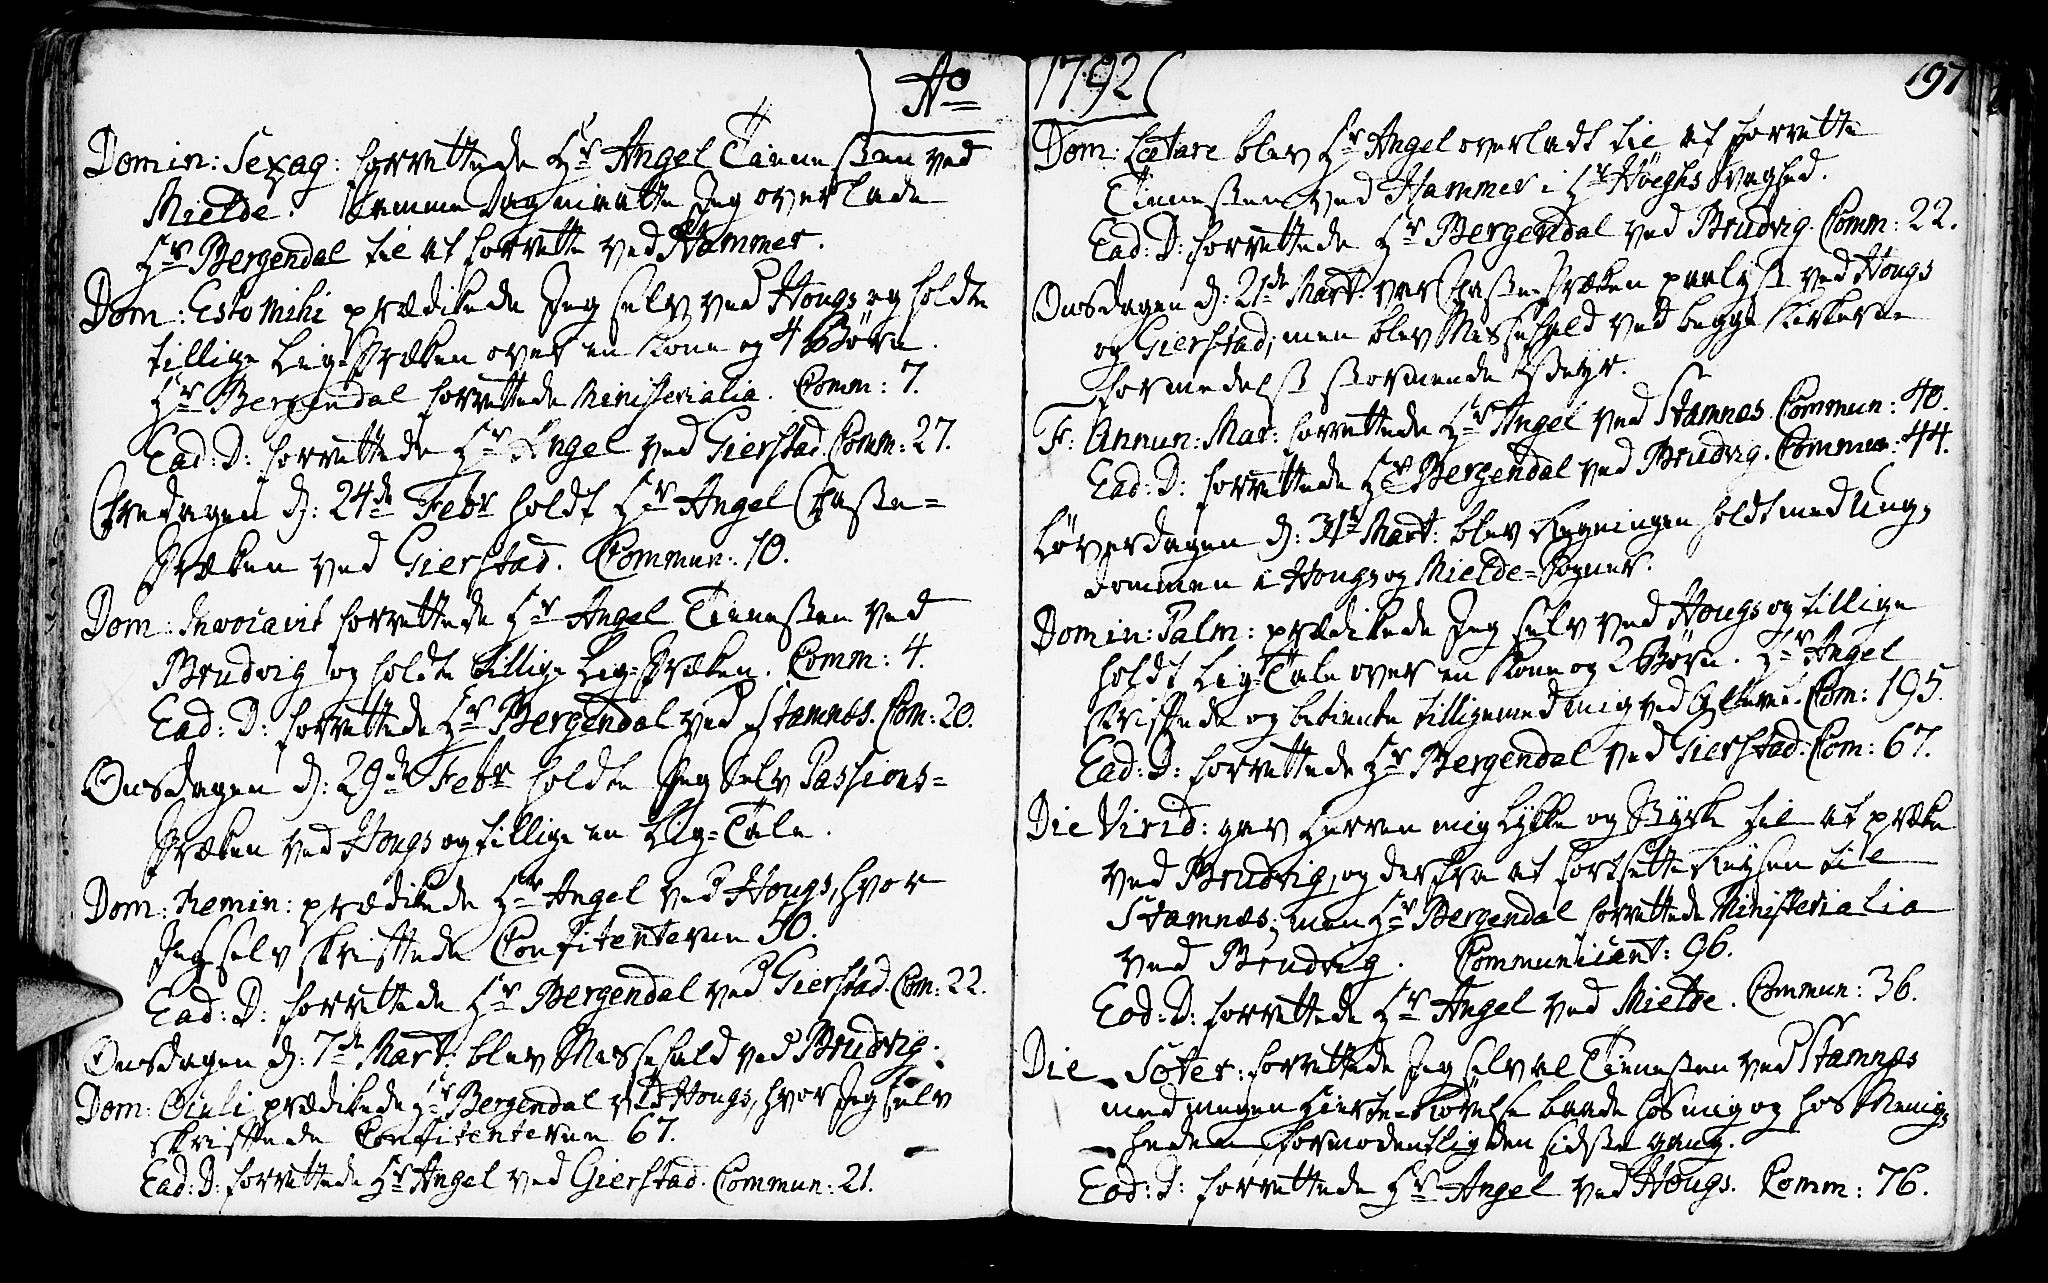 Ao
Domin: Sexag: forrettede Hr Angel Tienesten ved
Mielde. Samme Dag maatte Jeg overlade
Hr Bergendal til at forrette ved Hammer.
Dom: Esto mihi prædikede Jeg selv ved Hougs og holdte
tillige Lig-Præken over en Kone og 4 Børn.
Hr Bergendal forrettede Ministerialia. Comm: 7.
Ead: D: forrettede Hr Angel ved Gierstad. Comm: 27.
Fredagen d: 24de Febr holdt Hr Angel Faste=
Præken ved Gierstad. Commun: 10.
Dom: Invocavit forrettede Hr Angel Tienesten ved
Brudvig og holdte tillige Lig-Præken. Comm: 4.
Ead: D: forrettede Hr Bergendal ved Stamnes. Com: 20.
Onsdagen d: 29de Febr holdte Jeg selv Passions=
Præken ved Hougs og tillige en Lig=Tale.
Dom: Remin: prædikede Hr Angel ved Hougs, hvor
Jeg selv skriftede Confitenterne 50.
Ead: D: forrettede Hr Bergendal ved Gierstad. Com: 22.
Onsdagen d: 7de Mart: blev Messefald ved Brudvig.
Dom: Oculi prædikede Hr Bergendal ved Hougs, hvor Jeg selv
skriftede Confitenterne 67.
Ead: D: forrettede Hr Angel ved Gierstad. Commun: 21.
1792
197
Dom: Lætare blev Hr Angel overladt til at forrette
Tienesten ved Hammer i Hr Høeghs Svaghed.
Ead: D: forrettede Hr Bergendal ved Brudvig. Comm: 22.
Onsdagen d: 21de Mart: var Faste-Præken paalyst ved Hougs
og Gierstad; men blev Messefald ved begge Kirkerne
formedelst stormende Veyr.
F: Annun: Mar: forrettede Hr Angel ved Stamnes Commun: 40.
Ead: D: forrettede Hr Bergendal ved Brudvig. Commun: 44.
Løverdagen d: 31te Mart: blev Læsningen holdt med Ung=
dommen i Hougs og Mielde=Sogner.
Domin: Palm: prædikede Jeg selv ved Hougs og tillige
holdt Lig-Tale over en Kone og 2 Børn. Hr Angel
skriftede og betiente tilligemed mig ved Alteret. Com: 195.
Ead: D: forrettede Hr Bergendal ved Gierstad. Com: 67.
Die Virid: gav Herren mig Lykke og Styrke til at præke
ved Brudvig, og derfra at fortsætte Reysen til
Stamnes; men Hr Bergendal forrettede Ministerialia
ved Brudvig. Communicant: 96.
Eod: D: forrettede Hr Angel ved Mielde. Commun: 36.
Die Soter: forrettede Jeg selv al Tienesten ved Stamnes
med megen Hierte-Rørelse baade hos mig og hos Menig=
heden, formodentlig den sidste gang.
Eod: D: forrettede Hr Angel ved Hougs. Comm: 76.